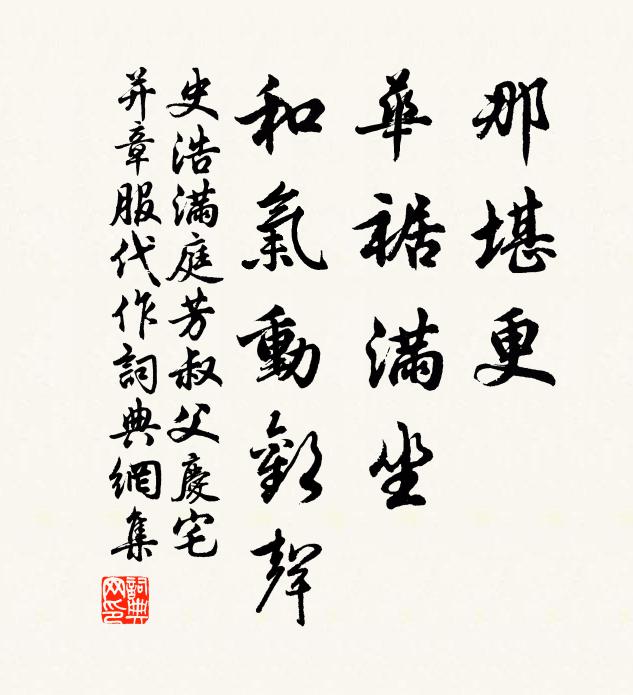 那堪更
華裾滿坐
和氣動歡聲
史浩滿庭芳叔父慶宅
并章服代作詞典網集
詞典網印